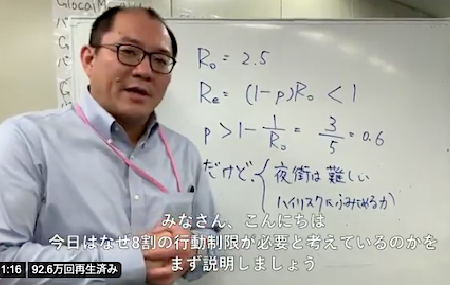 R₀ = 2.5
Re = (1-p)R₀ < 1
p > 1 - 1/R₀ = 3/5 = 0.6
だけど、{夜街は難しい
ハイリスクに
みなさん、こんにちは
今日はなぜ8割の行動制限が必要と考えているのかを
まず説明しましょう
1:16 92.6万回再生済み